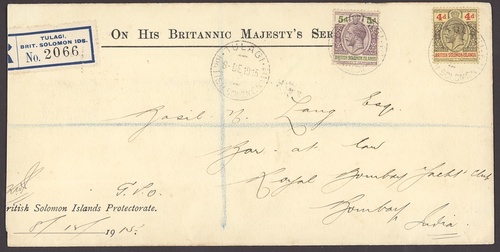 TULAGI,
BRIT. SOLOMON IDS.
R No. 2066
ON HIS BRITANNIC MAJESTY'S SER
5d 5d
BRITISH SOLOMON ISLANDS
4d 4d
BRITISH SOLOMON ISLANDS
TULAGI
DE 1915
SOLOMON
Basil N. Lang Esq.
Bar. at law
Royal Bombay Yacht Club
Bombay
India.
T.P.O.
ritish Solomon Islands Protectorate.
8/12/1915.